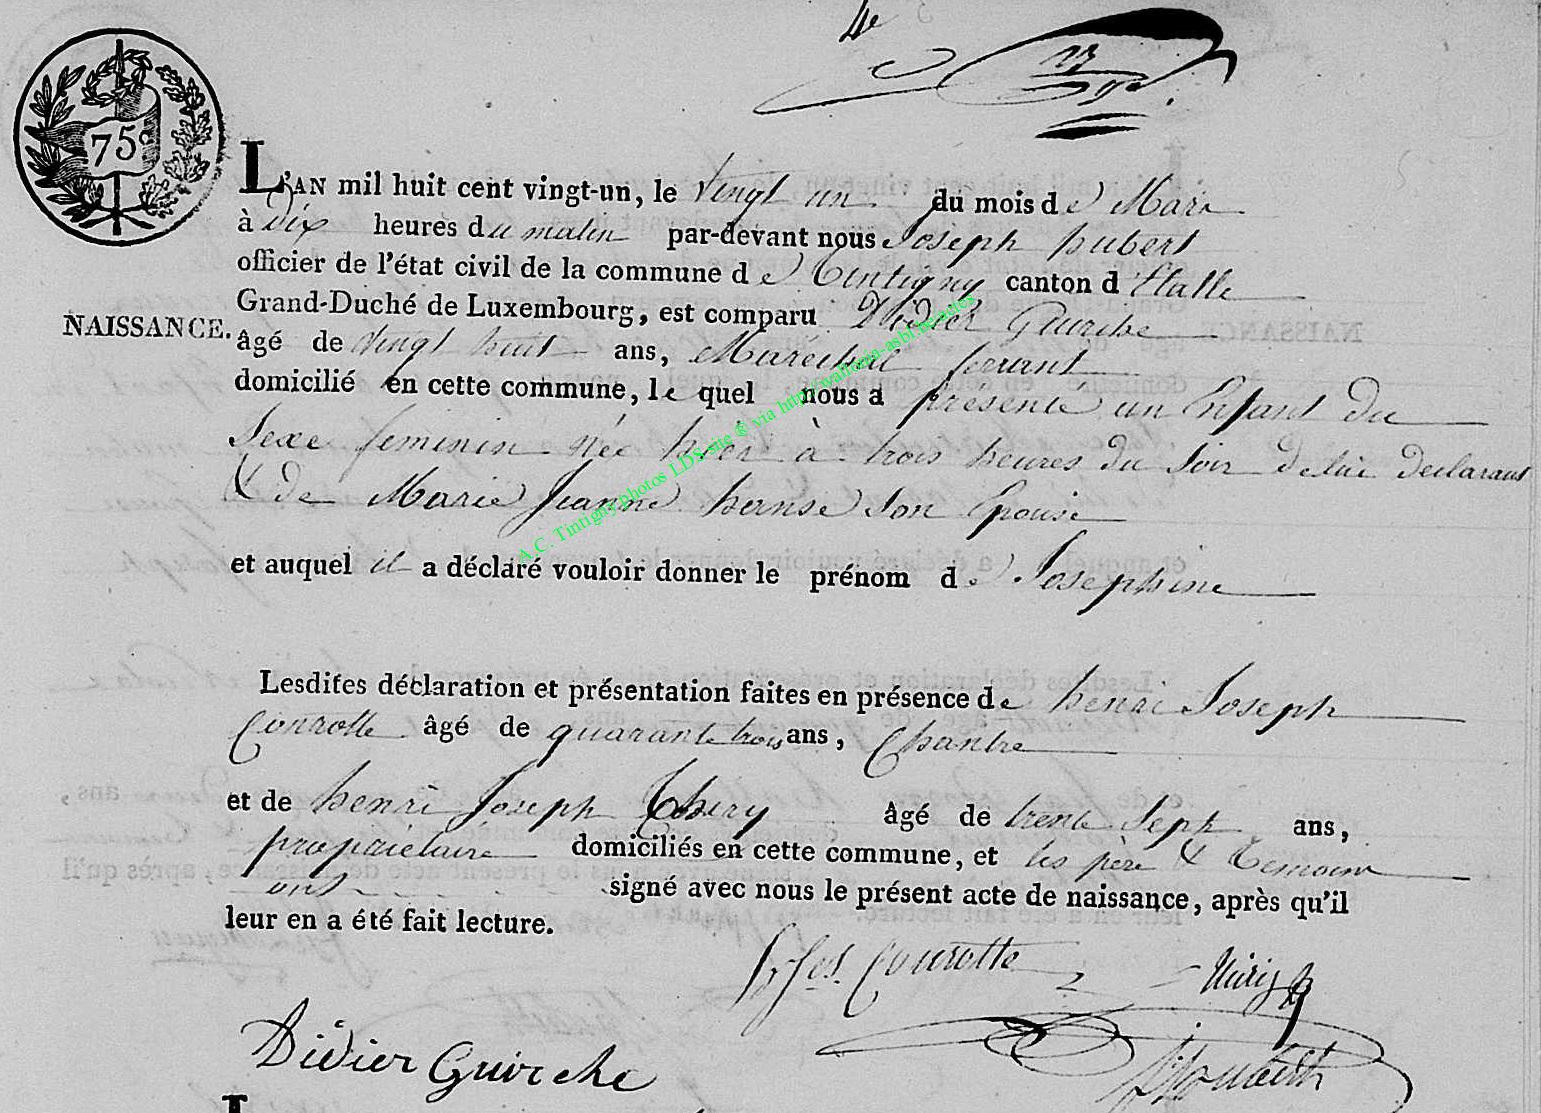 4e
75c
L'AN mil huit cent vingt-un, le Vingt un du mois de Mars
à Dix heures du matin par-devant nous Joseph hubert
officier de l'état civil de la commune de Tintigny canton d'Etalle
Grand-Duché de Luxembourg, est comparu Didier Guirche
NAISSANCE.
âgé de vingt huit ans, Marechal ferrant
domicilié en cette commune, lequel nous a présenté un Enfant Du
Sexe feminin Née hier à trois heures du Soir de lui Declarant
& de Marie Jeanne hanse Son Epouse
et auquel il a déclaré vouloir donner le prénom de Josephine
Lesdites déclaration et présentation faites en présence de henri Joseph
Conrotte âgé de quarante trois ans, Chantre
et de henri Joseph Thiry âgé de trente Sept ans,
propriétaire domiciliés en cette commune, et les père & Temoins
ont signé avec nous le présent acte de naissance, après qu'il
leur en a été fait lecture.
h Jos. Conrotte
Thiry
Didier Guirche
A.C. Tintigny photos LDS-site & via http://wallonia-asbl.be/actes